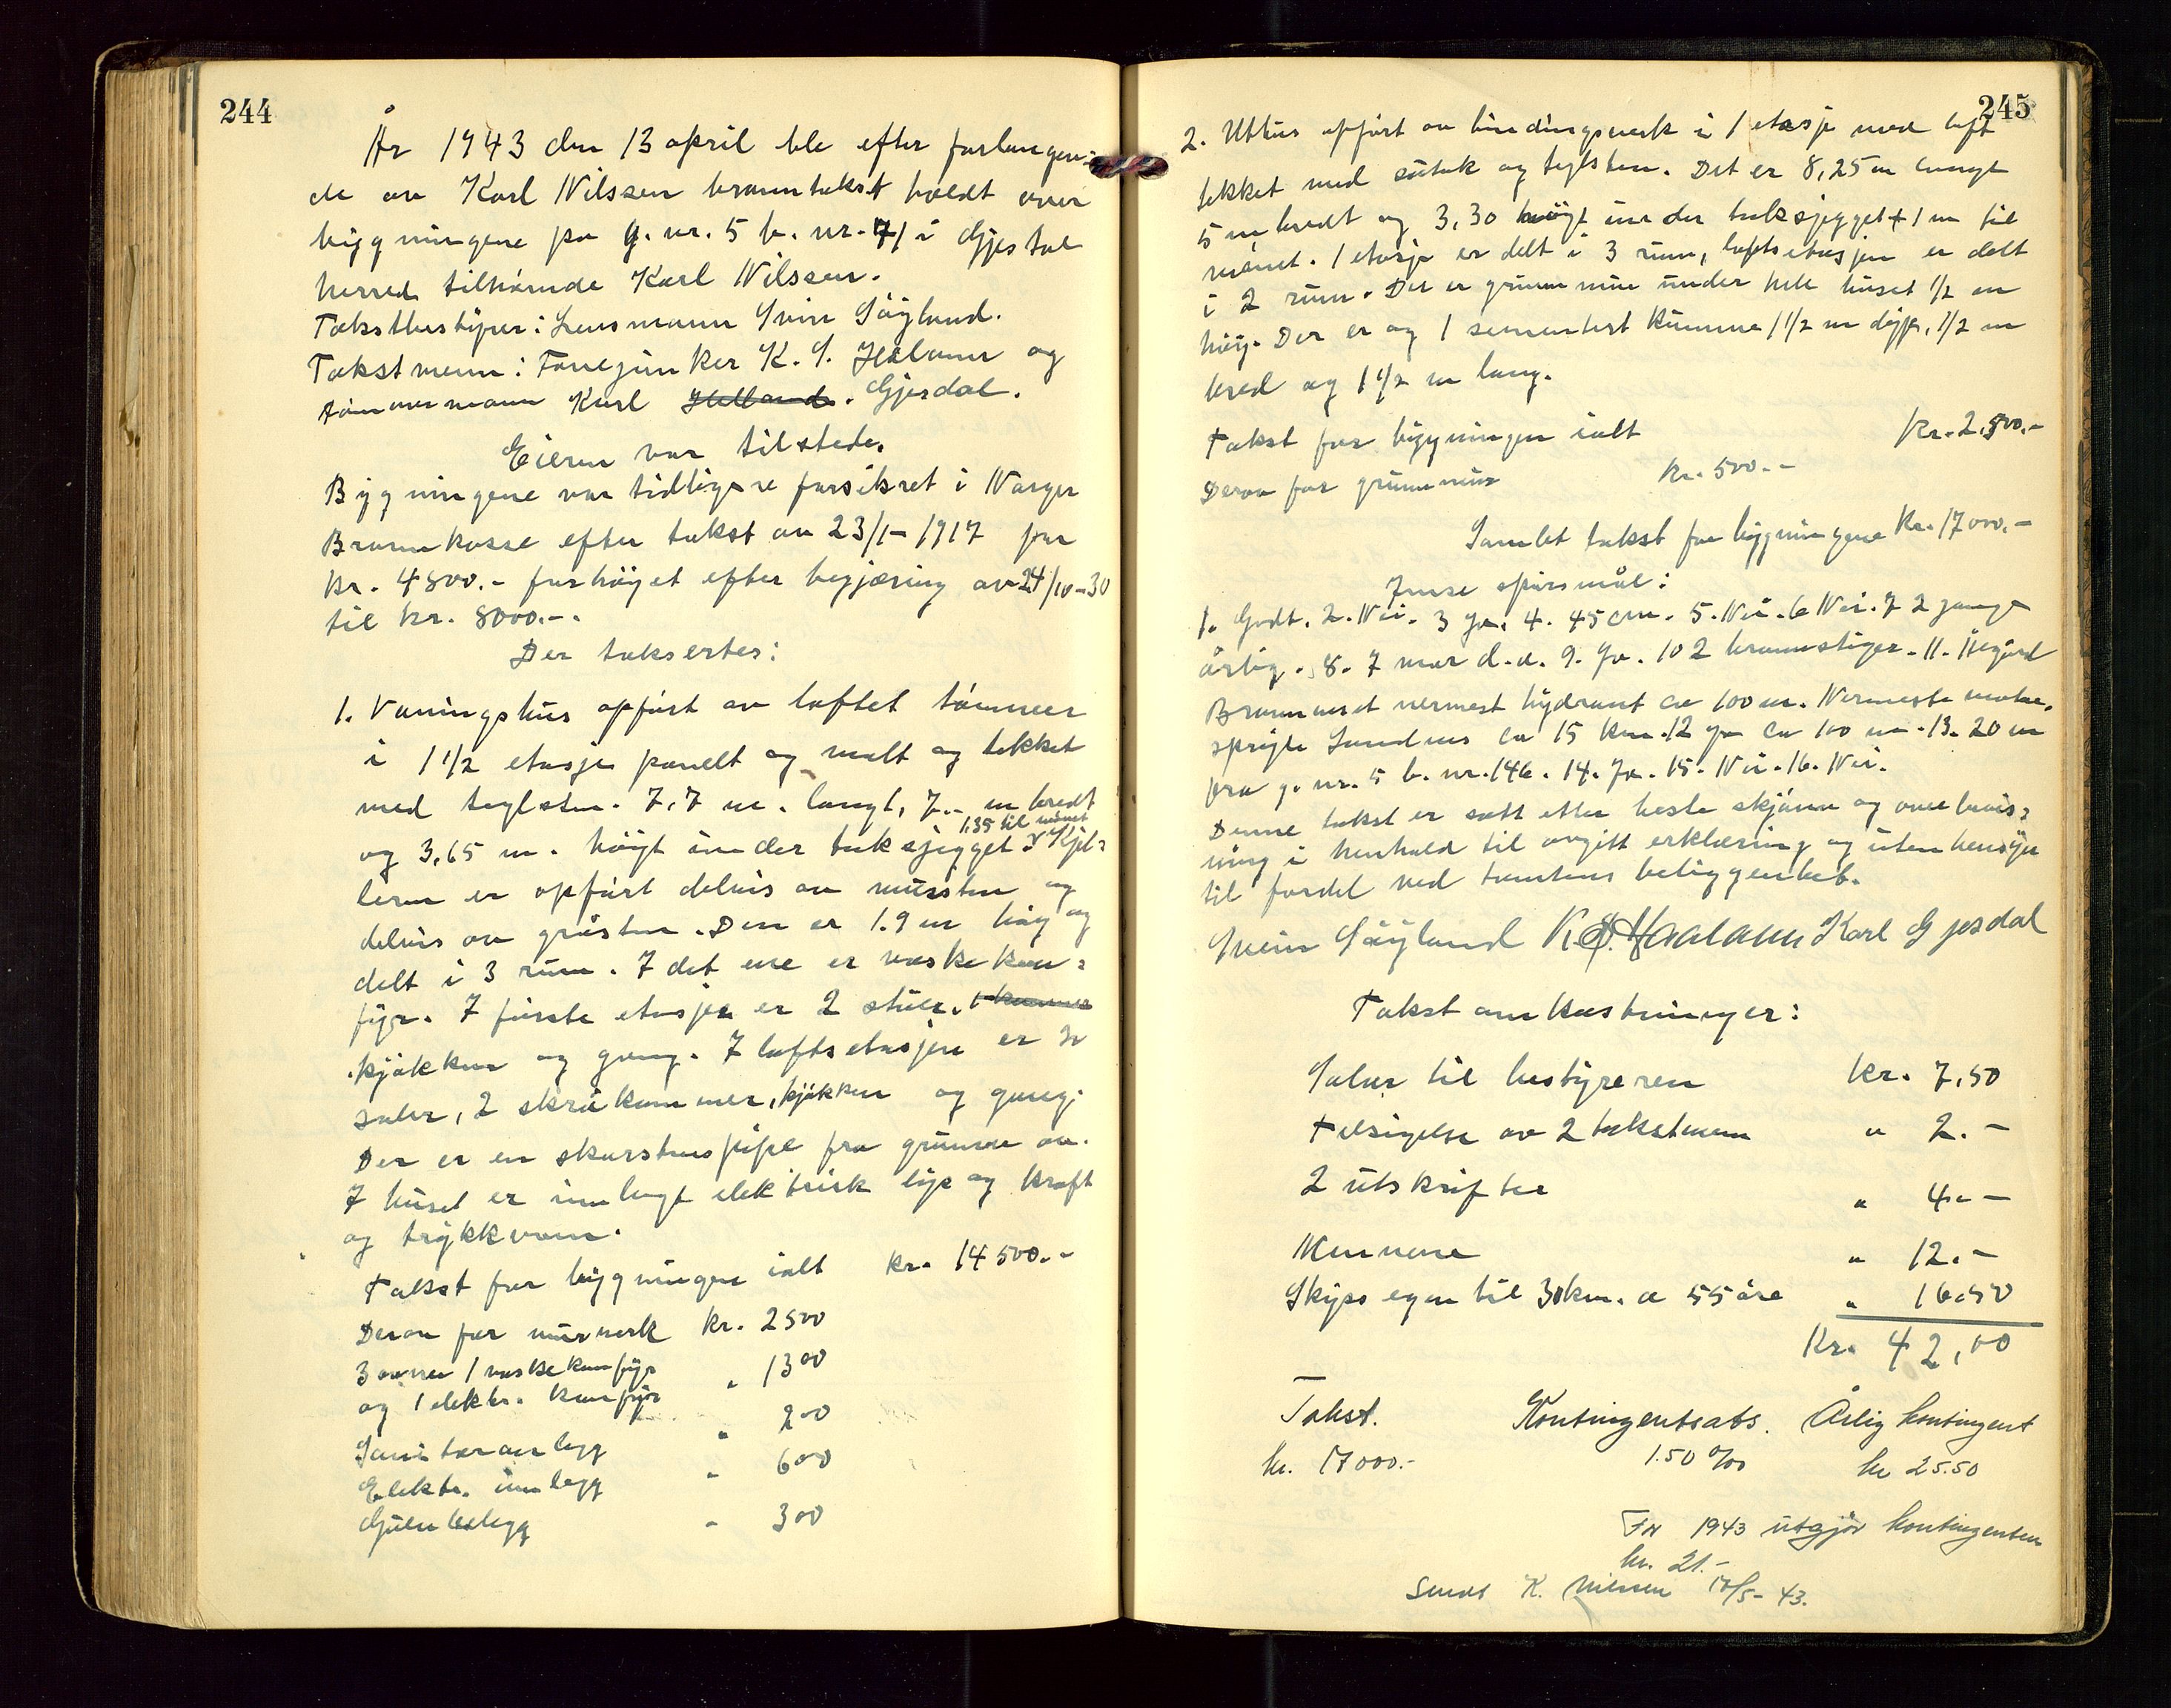 244
År 1943 den 13 april ble efter forlangen-
de av Karl Nilssen branntakst holdt over
bygningene på g. nr. 5 b. nr. 71 i Gjesdal
herred tilhørende Karl Nilssen.
Takstbestyrer: Lensmann Svein Søyland.
Takstmenn: Fanejunker K. S. Haaland og
tømmermann Karl Helland. Gjesdal.
Eieren var tilstede.
Bygningene var tidligere forsikret i Norges
Brannkasse efter takst av 23/1-1917 for
kr. 4800.- forhøyet efter begjæring av 24/10-30
til kr. 8000.-.
Der taksertes:
1. Våningshus opført av laftet tømmer
i 1 1/2 etasje panelt og malt og tekket
med teglsten. 7,7 m. langt, 7.- m bredt
og 3,65 m. høyt under takskjegget. 1.35 til mønet Kjel-
leren er opført delvis av mursten og
delvis av gråsten. Den er 1.9 m høy og
delt i 3 rum. I det ene er vaskekom-
fyr. I første etasje er 2 stuer, 1 kammer
kjøkken og gang. I loftsetasjen er 2
saler, 2 skråkammer, kjøkken og gang.
Der er en skorstenspipe fra grunnen av.
I huset er innlagt elektrisk lys og kraft
og trykkvann.
Takst for bygningen ialt kr. 14500.-
Derav for murverk kr. 2500
3 ovner 1 vaskekomfyr
og 1 elektr. komfyr " 1300
Sanitæranlegg " 200
Elektr. innlegg " 600
Gulvbelegg " 300
245
2. Uthus opført av bindingsverk i 1 etasje med loft
tekket med sutak og teglsten. Det er 8,25 m langt
5 m bredt og 3,30 høyt under takskjegget + 1 m til
mønet. 1 etasje er delt i 3 rum, loftsetasjen er delt
i 2 rum. Der er grunnmur under hele huset 1/2 m
høy. Der er og 1 sementert kumme 1 1/2 m dyp, 1 1/2 m
bred og 1 1/2 m lang.
Takst for bygningen ialt kr. 2.500.-
Derav for grunnmur kr. 500.-
Samlet takst for bygningene kr. 17000.-
Innse spørsmål:
1. Godt. 2. Nei. 3 Ja. 4. 45 cm. 5. Nei. 6 Nei. 7 2 gange
årlig. 8. 7 mar d. a. 9. Ja. 10 2 brannstiger. 11. Ålgård
Brannvæsen nermest hydrant ca 100 m. Nermeste motor-
sprøyte Sandnes ca 15 km. 12 Ja ca 100 m. 13. 20 m
fra g. nr. 5 b. nr. 146. 14. Ja. 15. Nei. 16. Nei.
Denne takst er satt etter beste skjønn og overbevis-
ning i henhold til avgitt erklæring og uten hensyn
til fordel ved tomtens beliggenhet.
Svein Søyland K. S. Haaland Karl Gjesdal
Takstomkostninger:
Salær til bestyreren kr. 7,50
Tilsigelse av 2 takstmenn " 2.-
2 utskrifter " 4.-
Mennene " 12.-
Skyss egen til 30 km. a 55 øre " 16.50
Kr. 42,00
Takst. Kontingentsats. Årlig kontingent
kr. 17000.- 1.50 ‰ kr 25.50
For 1943 utgjør kontingenten
kr. 21.-
Sendt K. Nilssen 10/5-43.